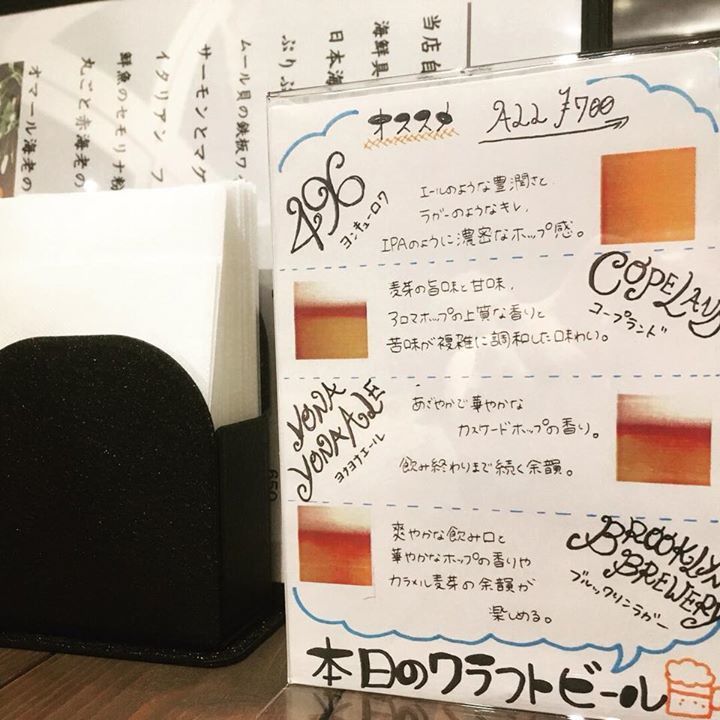 当店自
海鮮具
日本海
ぷりぷ
ムール貝の鉄板ワ
サーモンとマグ
イタリアン フ
鮮魚のセモリナ粉
丸ごと赤海老の
オマール海老の
650
オススメ ALL ¥700
496
ヨンキューロク
エールのような豊潤さと、
ラガーのようなキレ、
IPAのように濃密なホップ感。
COPELAND
コープランド
麦芽の旨味と甘味、
アロマホップの上質な香りと
苦味が複雑に調和した味わい。
YONA
YONA ALE
ヨナヨナエール
あざやかで華やかな
カスケードホップの香り。
飲み終わりまで続く余韻。
BROOKLYN
BREWERY
ブルックリンラガー
爽やかな飲み口と
華やかなホップの香りや
カラメル麦芽の余韻が
楽しめる。
本日のクラフトビール